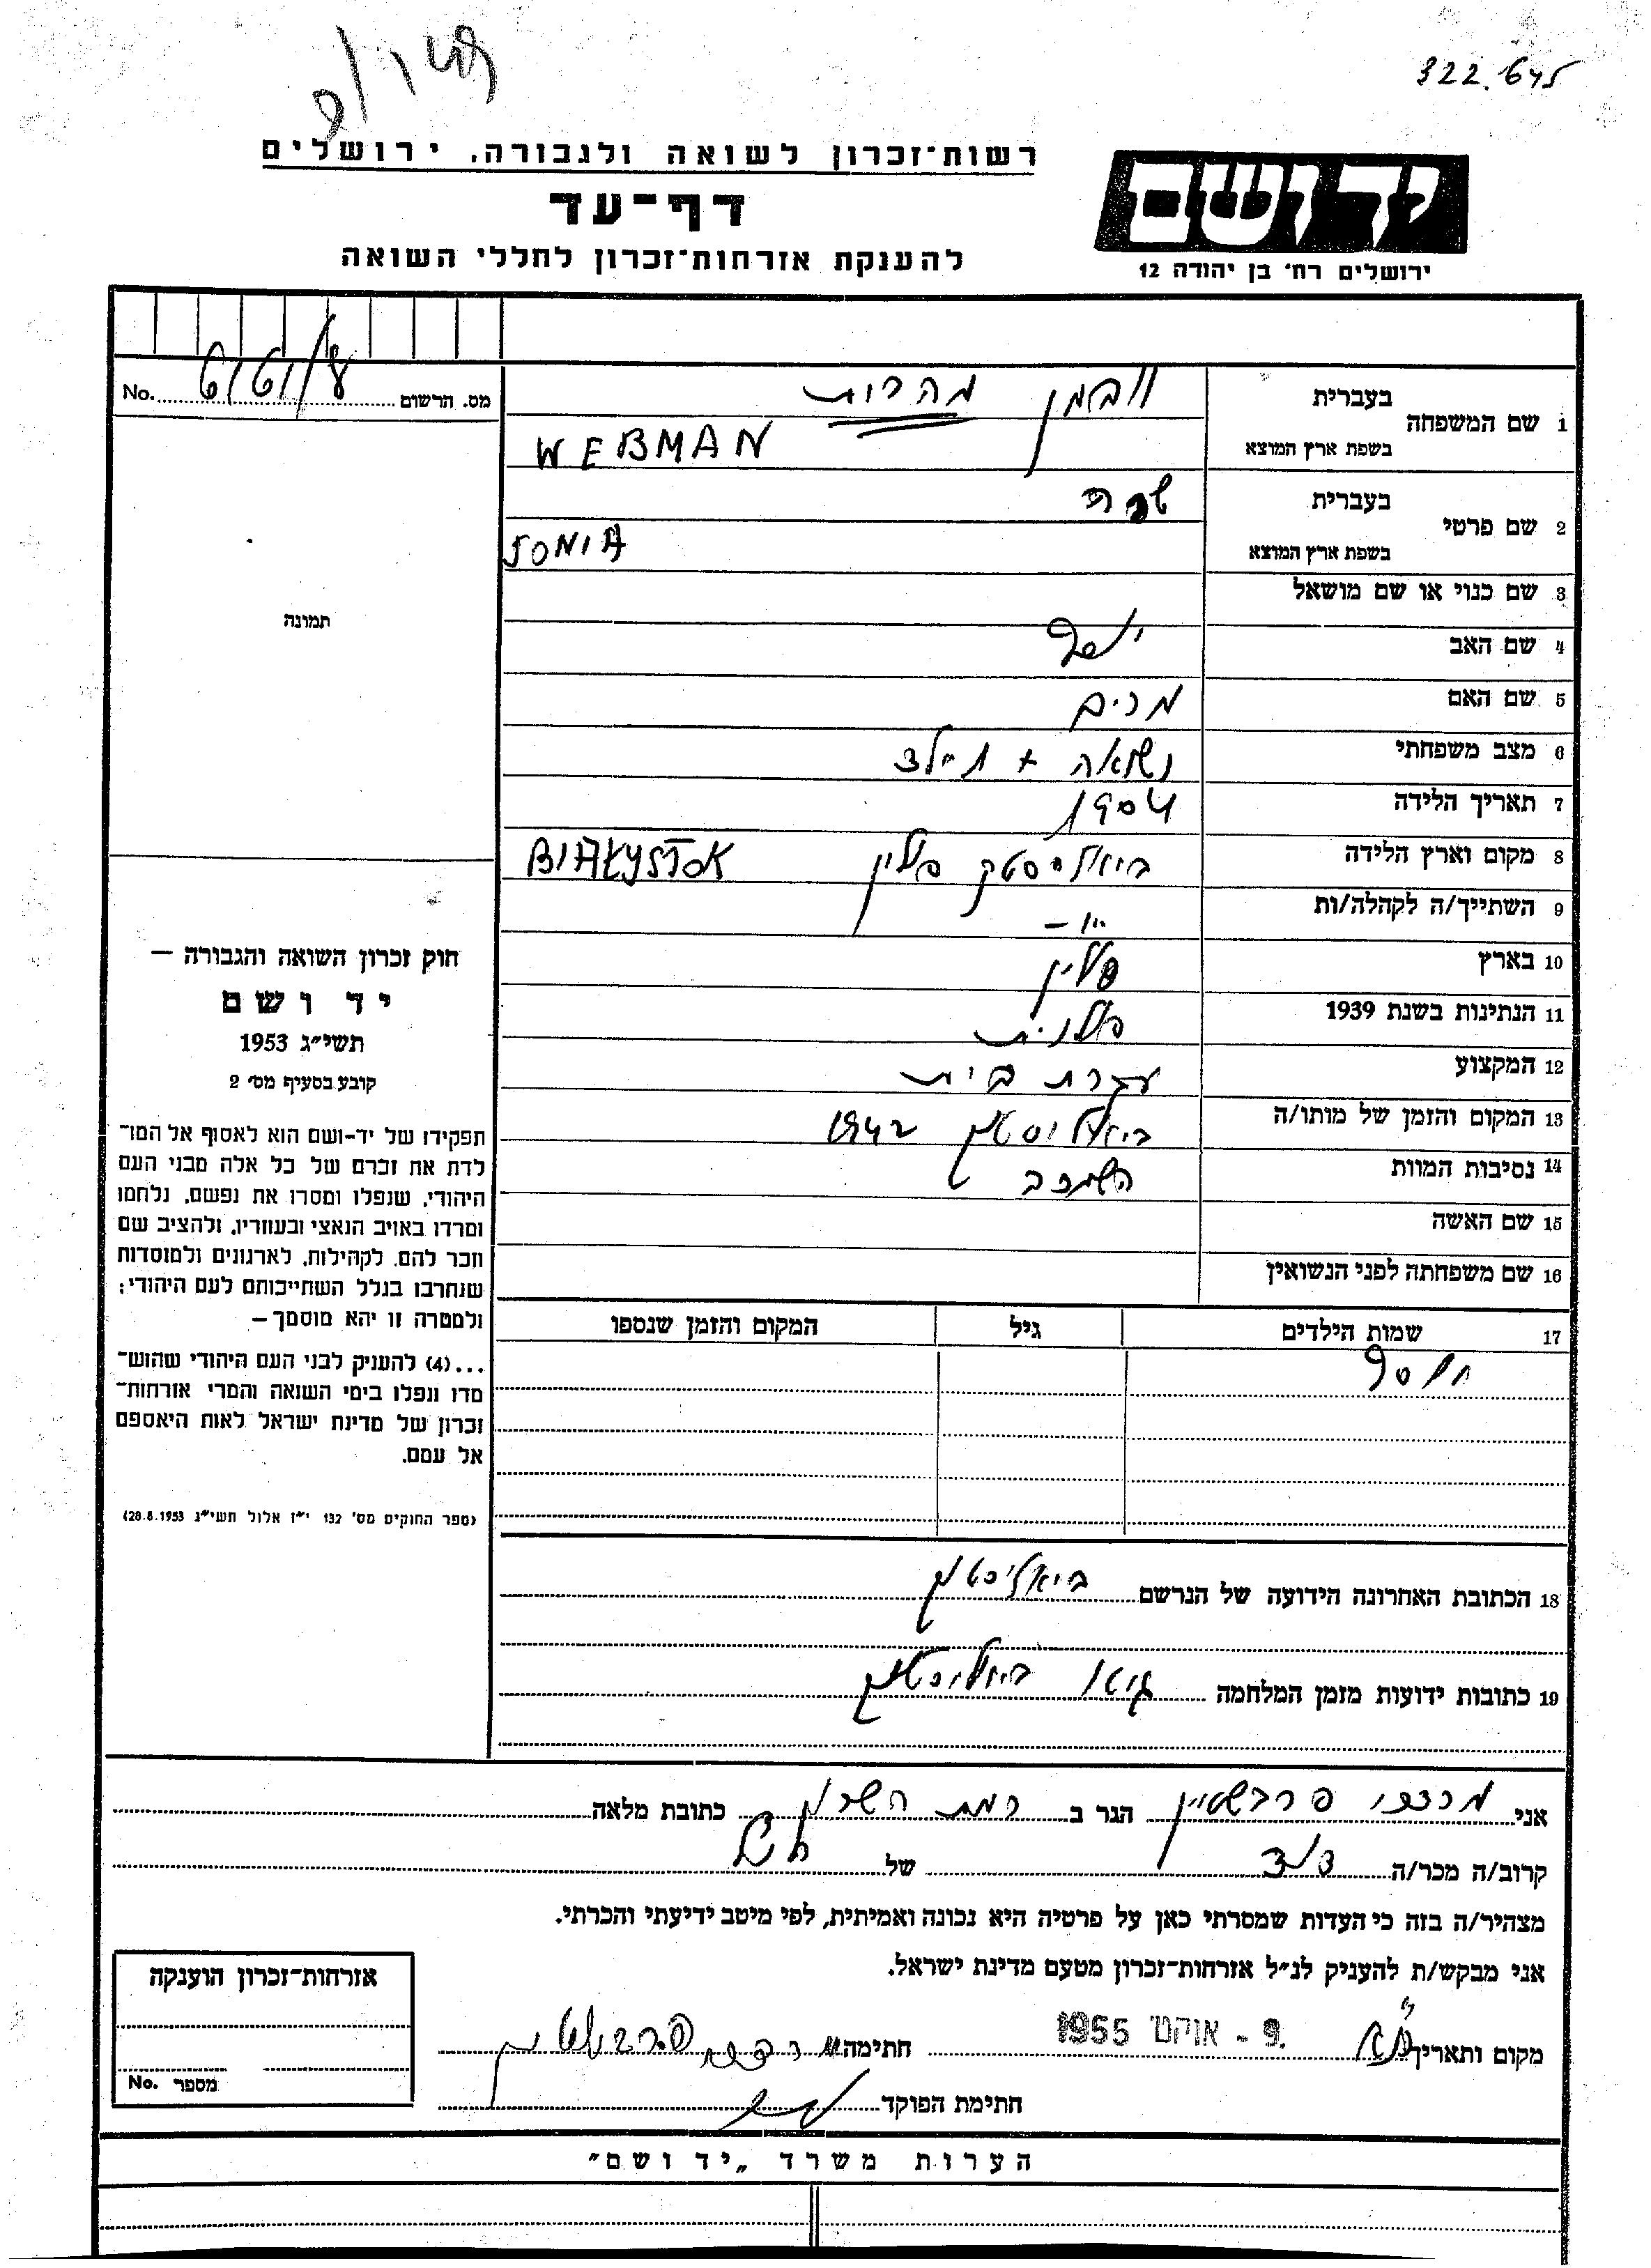 322.645
רשות־זכרון לשואה ולגבורה, ירושלים
דף־עד
להענקת אזרחות־זכרון לחללי השואה
יד ושם
ירושלים רח׳ בן יהודה 12
מס. הרשום No.
1 שם המשפחה בעברית ובמן
בשפת ארץ המוצא WEBMAN
2 שם פרטי בעברית
בשפת ארץ המוצא SONIA
3 שם כנוי או שם מושאל
4 שם האב יוסף
5 שם האם מרים
6 מצב משפחתי נשואה +
7 תאריך הלידה 1904
8 מקום וארץ הלידה ביאליסטק פולין BIAŁYSTOK
9 השתייך/ה לקהלה/ות -"-
10 בארץ פולין
11 הנתינות בשנת 1939 פולנית
12 המקצוע עקרת בית
13 המקום והזמן של מותו/ה ביאליסטוק 1942
14 נסיבות המוות
15 שם האשה
16 שם משפחתה לפני הנשואין
17 שמות הילדים גיל המקום והזמן שנספו
18 הכתובת האחרונה הידועה של הנרשם ביאליסטוק
19 כתובות ידועות מזמן המלחמה גיטו ביאליסטוק
תמונה
חוק זכרון השואה והגבורה —
יד ושם
תשי״ג 1953
קובע בסעיף מס׳ 2
תפקידו של יד-ושם הוא לאסוף אל המו־
לדת את זכרם של כל אלה מבני העם
היהודי, שנפלו ומסרו את נפשם, נלחמו
ומרדו באויב הנאצי ובעוזריו, ולהציב שם
וזכר להם, לקהילות, לארגונים ולמוסדות
שנחרבו בגלל השתייכותם לעם היהודי;
ולמטרה זו יהא מוסמך —
...(4) להעניק לבני העם היהודי שהוש־
מדו ונפלו בימי השואה והמרי אזרחות־
זכרון של מדינת ישראל לאות היאספם
אל עמם.
(ספר החוקים מס׳ 132 י״ז אלול תשי״ג 28.8.1953)
אני מרדכי פרבשטיין הגר ב רמת השרון כתובת מלאה
קרוב/ה מכר/ה דוד של
מצהיר/ה בזה כי העדות שמסרתי כאן על פרטיה היא נכונה ואמיתית, לפי מיטב ידיעתי והכרתי.
אני מבקש/ת להעניק לנ״ל אזרחות־זכרון מטעם מדינת ישראל.
מקום ותאריך 9.- אוקט׳ 1955 חתימה מרדכי פרבשטיין
חתימת הפוקד
אזרחות־זכרון הוענקה
מספר No.
הערות משרד „יד ושם״